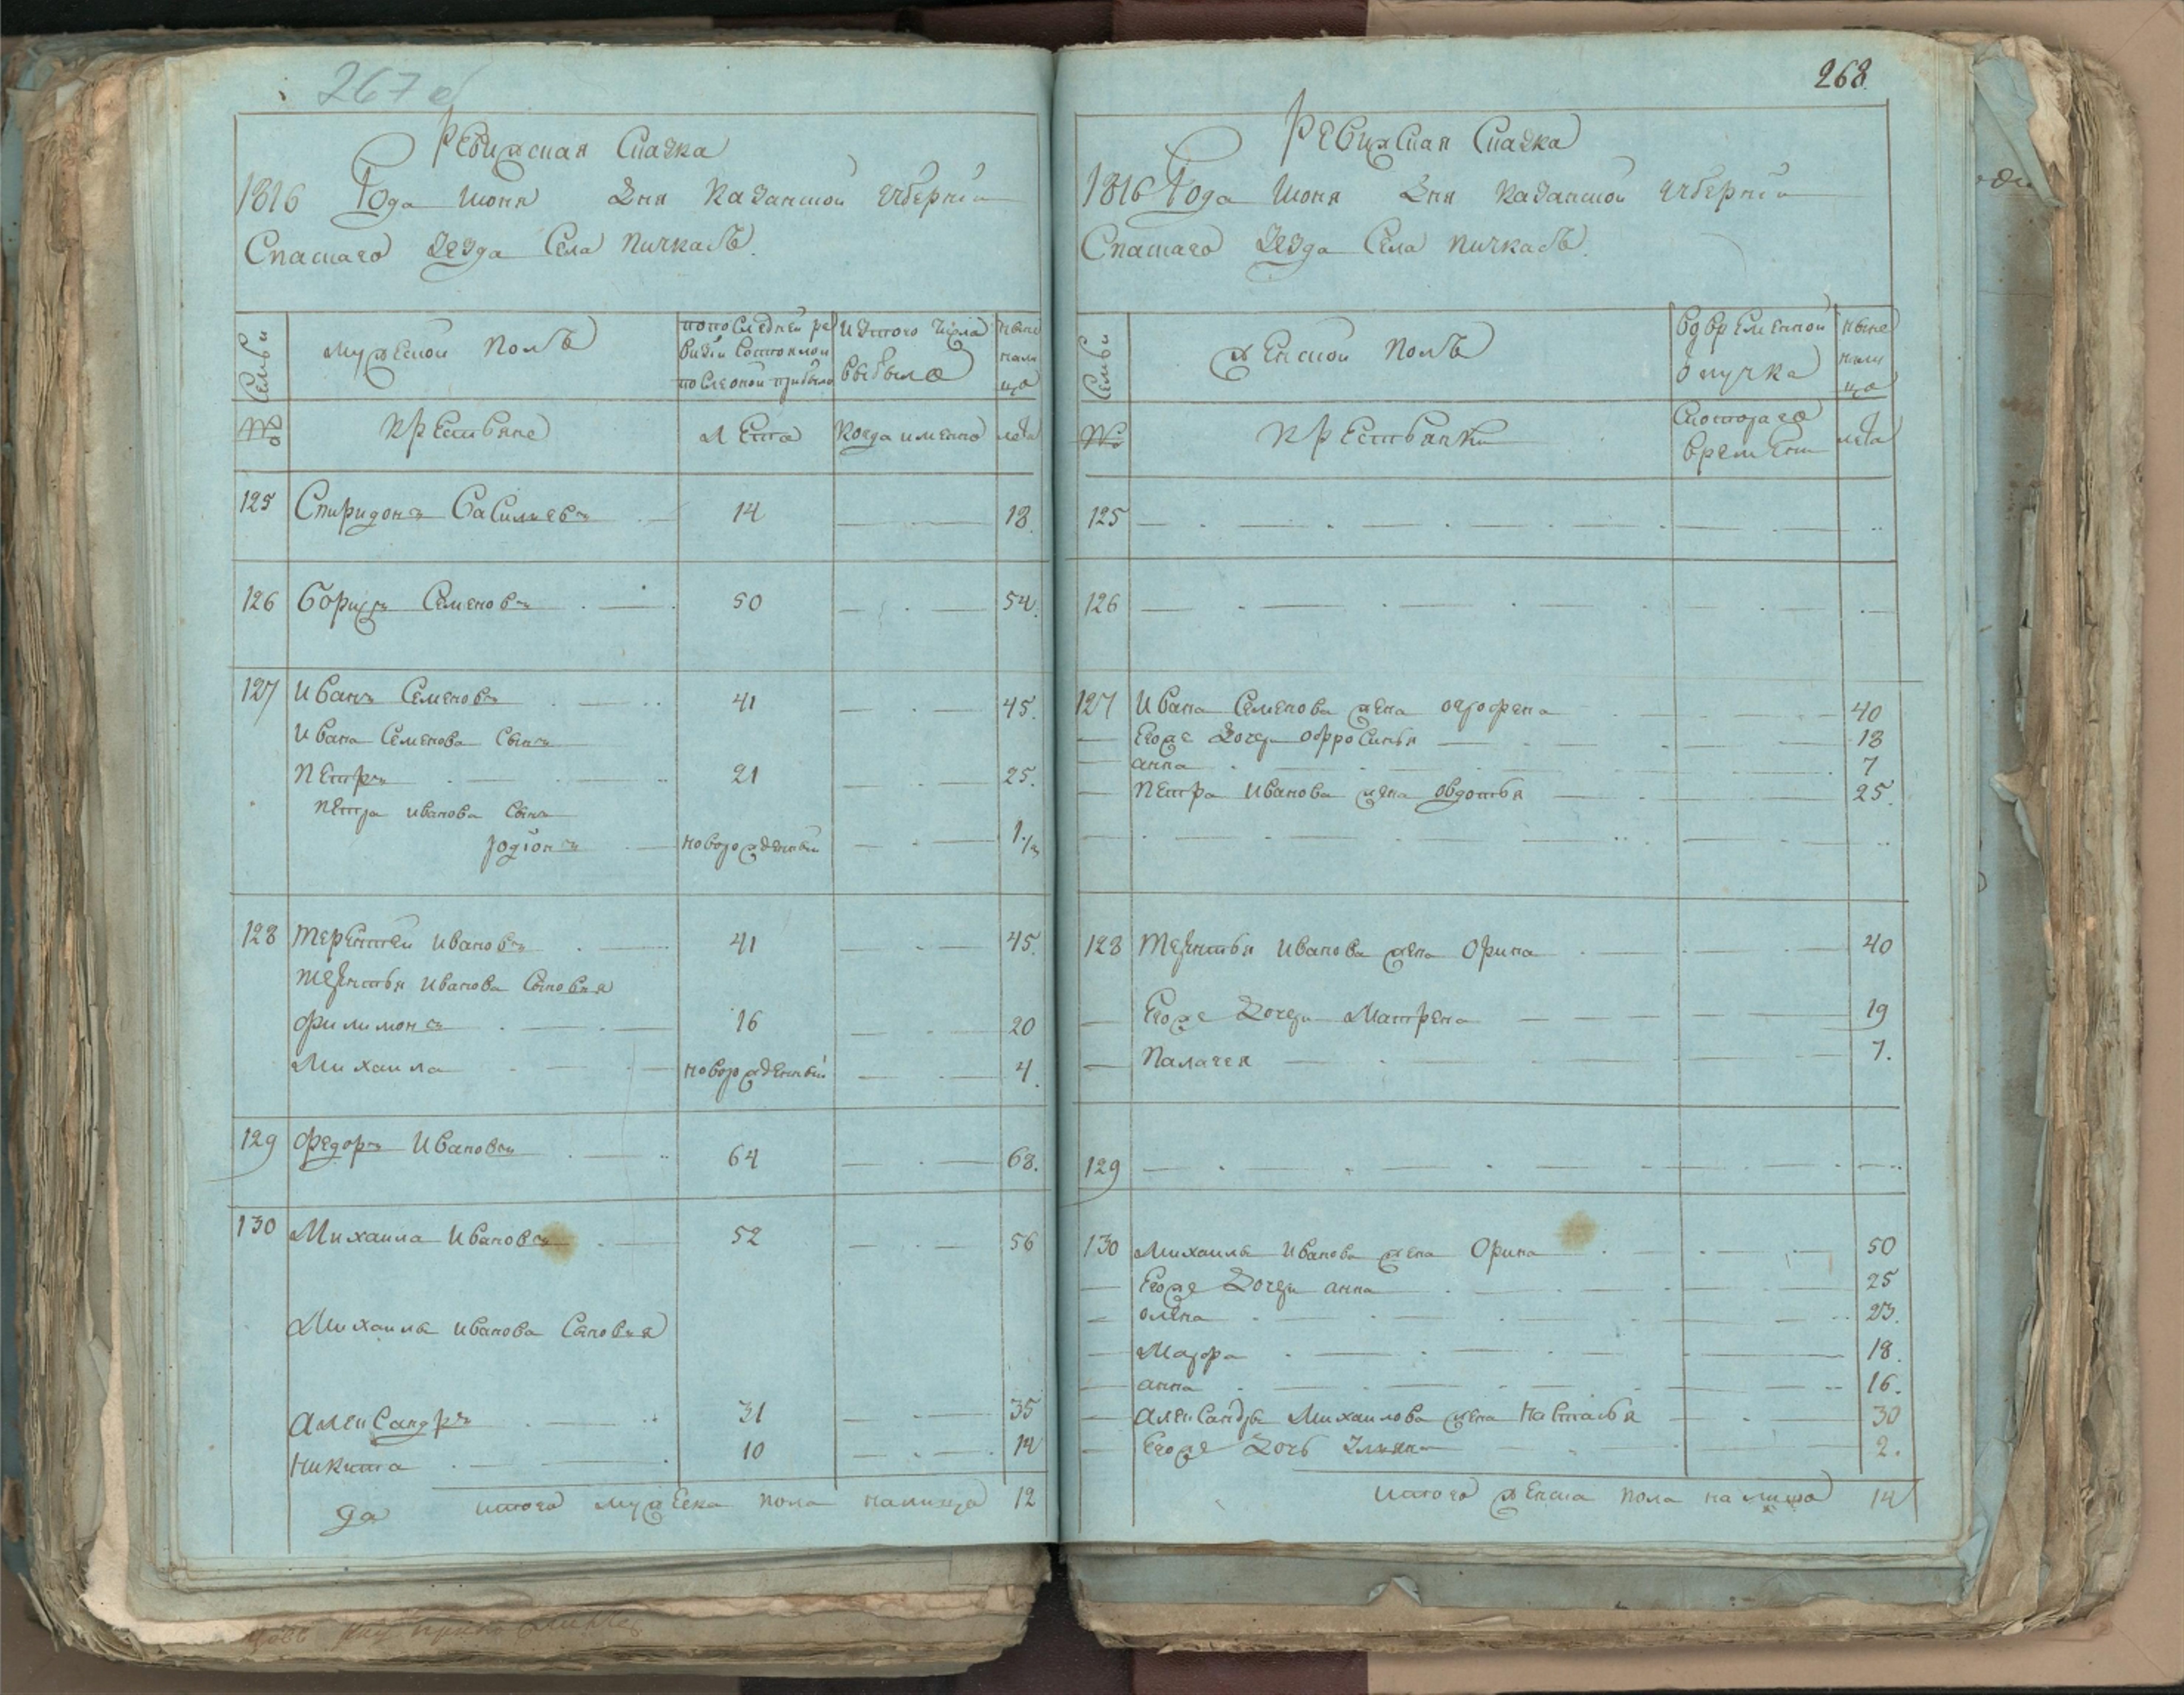 267 об
Ревижская Сказка
1816 Года Июня Дня Казанской Губернїи
Спаскаго Уезда Села Пичкасъ.
Семьи
мужеской Полъ
попоследней ре
визїи Состояло и
после оной прибыло
Изтого числа
выбыло
ныне
нали
цо
№
Крестьяне
Лета
Когда имено
лета
125 Спиридонъ Васильевъ 14 18.
126 Борисъ Семеновъ 50 54.
127 Иванъ Семеновъ 41 45.
Ивана Семенова Сынъ
Петръ 21 25.
Петра Иванова Сынъ
родїонъ новорожденный
128 Терентей Ивановъ 41 45.
Терентья Иванова Сыновья
Филимонъ 16 20
Михаила новорожденный 4.
129 Федоръ Ивановъ 64 68.
130 Михаила Ивановъ 52 56
Михаилы Иванова Сыновья
Александръ 31 35
Никита 10 14
итого мужеска пола налицо 12
да
268.
Ревижская Сказка
1816 Года Июня Дня Казанской Губернїи
Спаскаго Уезда Села Пичкасъ.
Семьи
Женской Полъ
Во временной
отлучка
ныне
нали
цо
№
Крестьянки
Скотораго
времени
лета
125
126
127 Ивана Семенова жена 40
Егоже Дочери Офросинья 18
анна 7
Петра Иванова жена Овдотья 25.
128 Терентья Иванова жена Орина 40
Егоже Дочери Матрена 19
Палагея 7.
129
130 Михаилы Иванова жена Орина 50
Егоже Дочери анна 25
олена 23.
Марфа 18.
анна 16.
Александры Михаилова жена Наталья 30
Егоже Дочь 2.
итого женска пола налицо 14